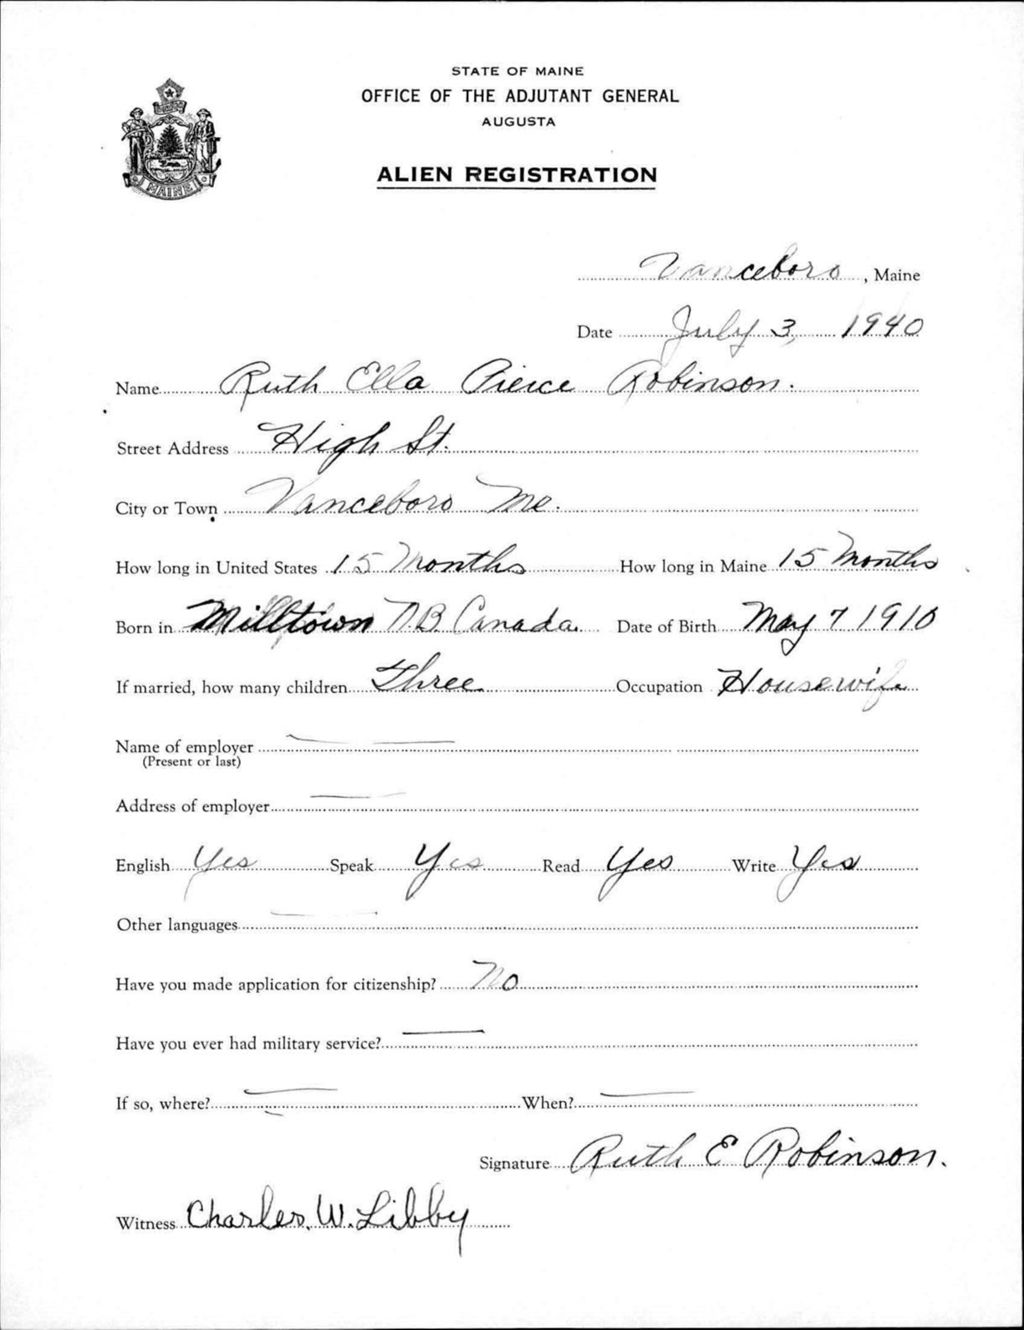 STATE OF MAINE
OFFICE OF THE ADJUTANT GENERAL
AUGUSTA
ALIEN REGISTRATION
MAINE
Vanceboro, Maine
Date July 3, 1940
Name Ruth Ella Pierce Robinson.
Street Address High St.
City or Town Vanceboro Me.
How long in United States 15 Months How long in Maine 15 Months
Born in Milltown N.B. Canada. Date of Birth May 7 1910
If married, how many children Three Occupation Housewife
Name of employer
(Present or last)
Address of employer
English Yes Speak Yes Read Yes Write Yes
Other languages
Have you made application for citizenship? No
Have you ever had military service?
If so, where? When?
Signature Ruth E Robinson.
Witness Charles W. Libby